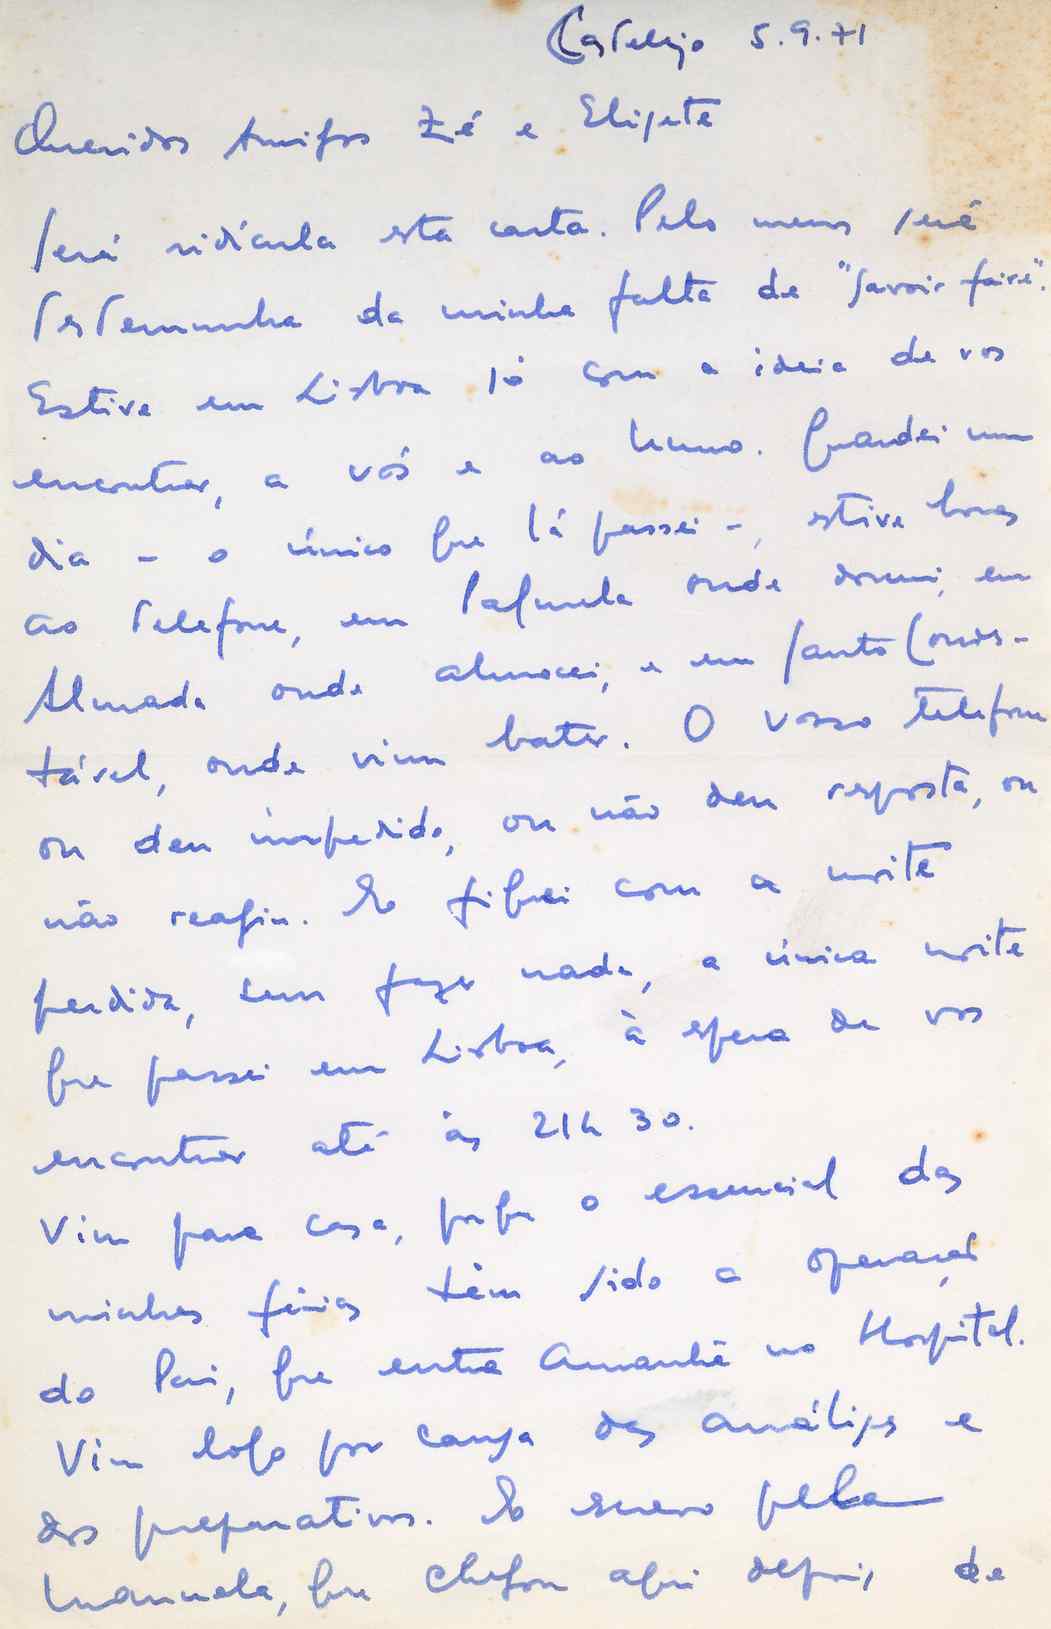 Castelejo 5.9.71
Queridos Amigos Zé e Elisete
Será ridícula esta carta. Pelo menos será
testemunha da minha falta de "savoir faire".
Estive em Lisboa só com a ideia de vos
encontrar, a vós e ao Nuno. Guardei um
dia - o único que lá passei -, estive horas
ao telefone, em Palmela onde dormi, em
Almada onde almocei, e em Santo Condes-
tável, onde vim bater. O vosso telefone
ou deu impedido, ou não deu resposta, ou
não reagiu. Eu fiquei com a noite
perdida, sem fazer nada, a única noite
que passei em Lisboa, à espera de vos
encontrar até às 21h 30.
Vim para casa, porque o essencial das
minhas férias têm sido a operação
do Pai, que entra amanhã no Hospital.
Vim logo por causa das análises e
dos preparativos. Eu espero pela
Manuela, que chegou aqui depois de